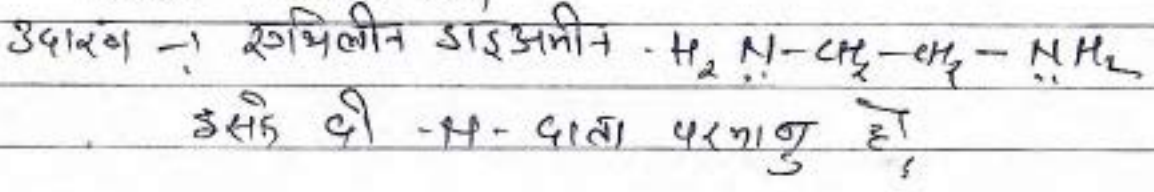 उदारण -: एथिलीन डाइअमीन - H₂N̤-CH₂-CH₂-N̤H₂
इसके दो -N- दाता परमाणु है,